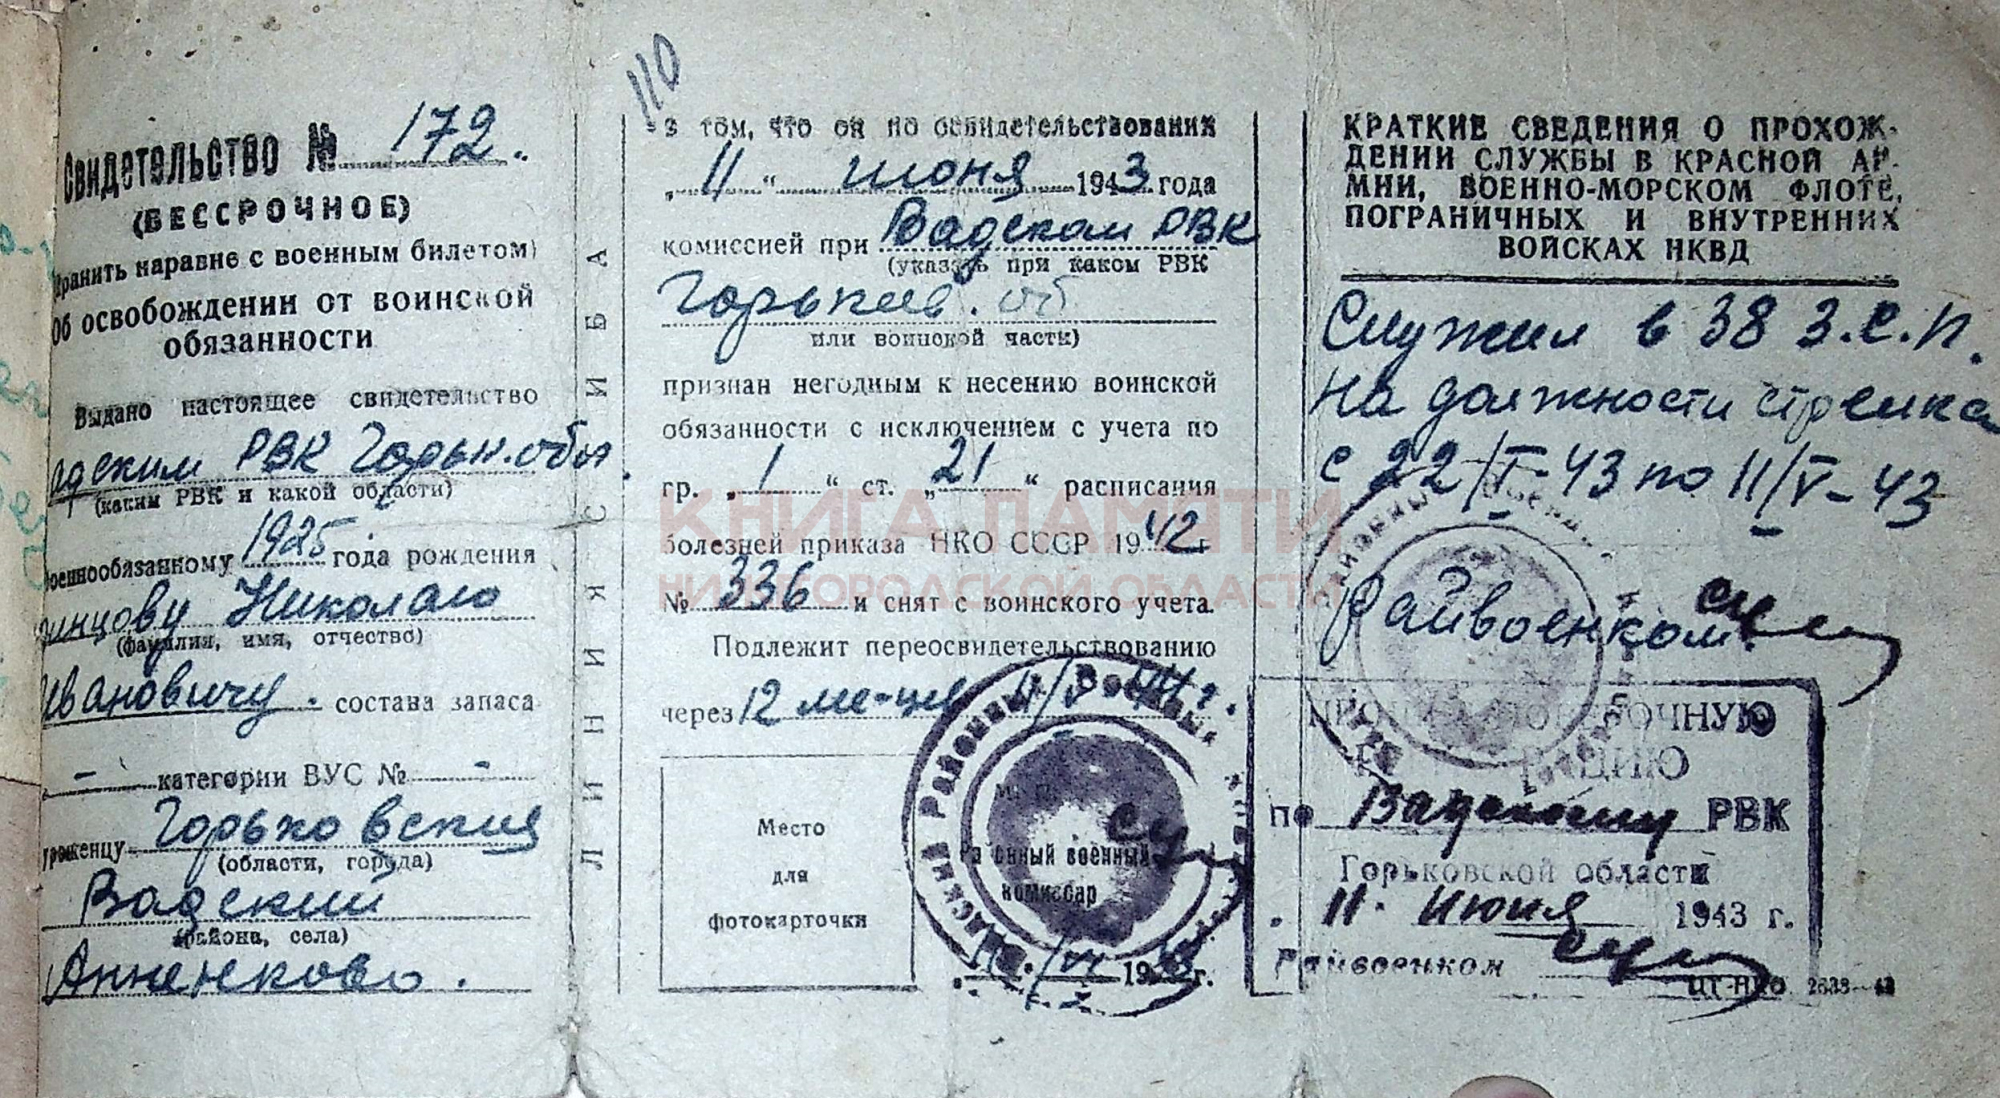 110
Свидетельство № 172.
(БЕССРОЧНОЕ)
хранить наравне с военным билетом)
Об освобождении от воинской
обязанности
Выдано настоящее свидетельство
адским РВК Горьк. обл.
(каким РВК и какой области)
военнообязанному 1925 года рождения
инцову Николаю
(фамилия, имя, отчество)
Ивановичу. состава запаса
- категории ВУС № -
уроженцу Горьковския
(области, города)
Вадский
(района, села)
Анненково.
ЛИНИЯ СГИБА
в том, что он по освидетельствовании
„ 11 “ июня 1943 года
комиссией при Вадском РВК
(указать при каком РВК
Горьков. об
или воинской части)
признан негодным к несению воинской
обязанности с исключением с учета по
гр. „ 1 “ ст. „ 21 “ расписания
болезней приказа НКО СССР 1942 г
№ 336 и снят с воинского учета.
Подлежит переосвидетельствованию
через 12 ме-цев
Место
для
фотокарточки
Районный военный
комиссар
КРАТКИЕ СВЕДЕНИЯ О ПРОХОЖ-
ДЕНИИ СЛУЖБЫ В КРАСНОЙ АР-
МИИ, ВОЕННО-МОРСКОМ ФЛОТЕ,
ПОГРАНИЧНЫХ И ВНУТРЕННИХ
ВОЙСКАХ НКВД
Служил в 38 З.С.П.
на должности стрелка
с 22/I-43 по 11/V-43
Райвоенком
ПРОШЕЛ ПОВЕРОЧНУЮ
по Вадскому РВК
Горьковской области
. 11. Июня 1943 г.
Райвоенком
КНИГА ПАМЯТИ
НИЖЕГОРОДСКОЙ ОБЛАСТИ